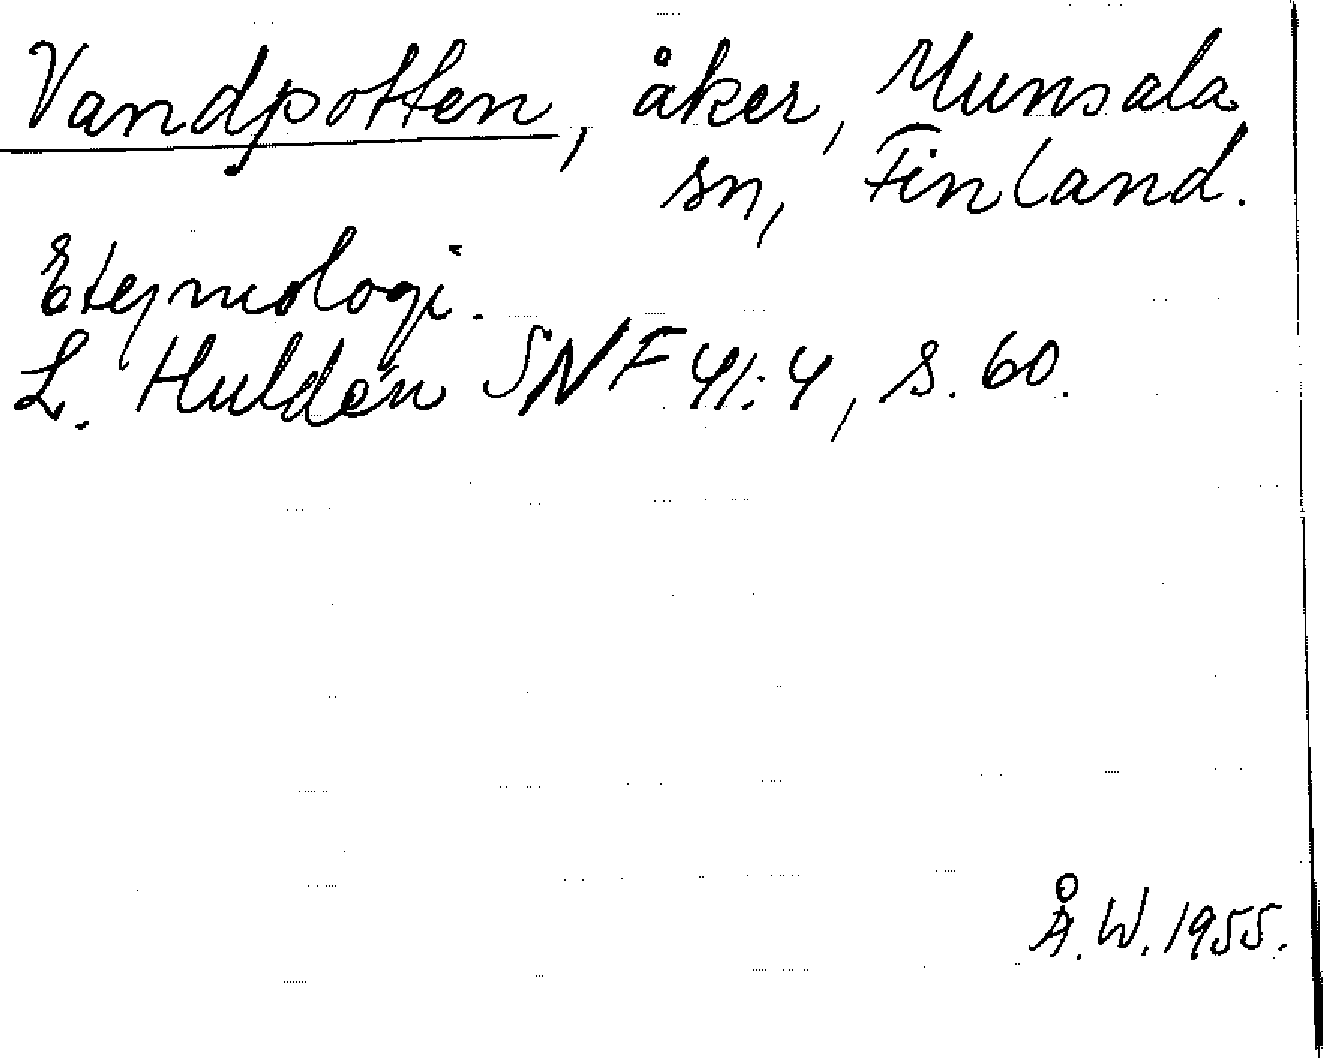 Vandpotten, åker, Munsala
sn, Finland.
Etymologi.
L. Huldén SNF 41:4, s. 60.
Å. W. 1955.